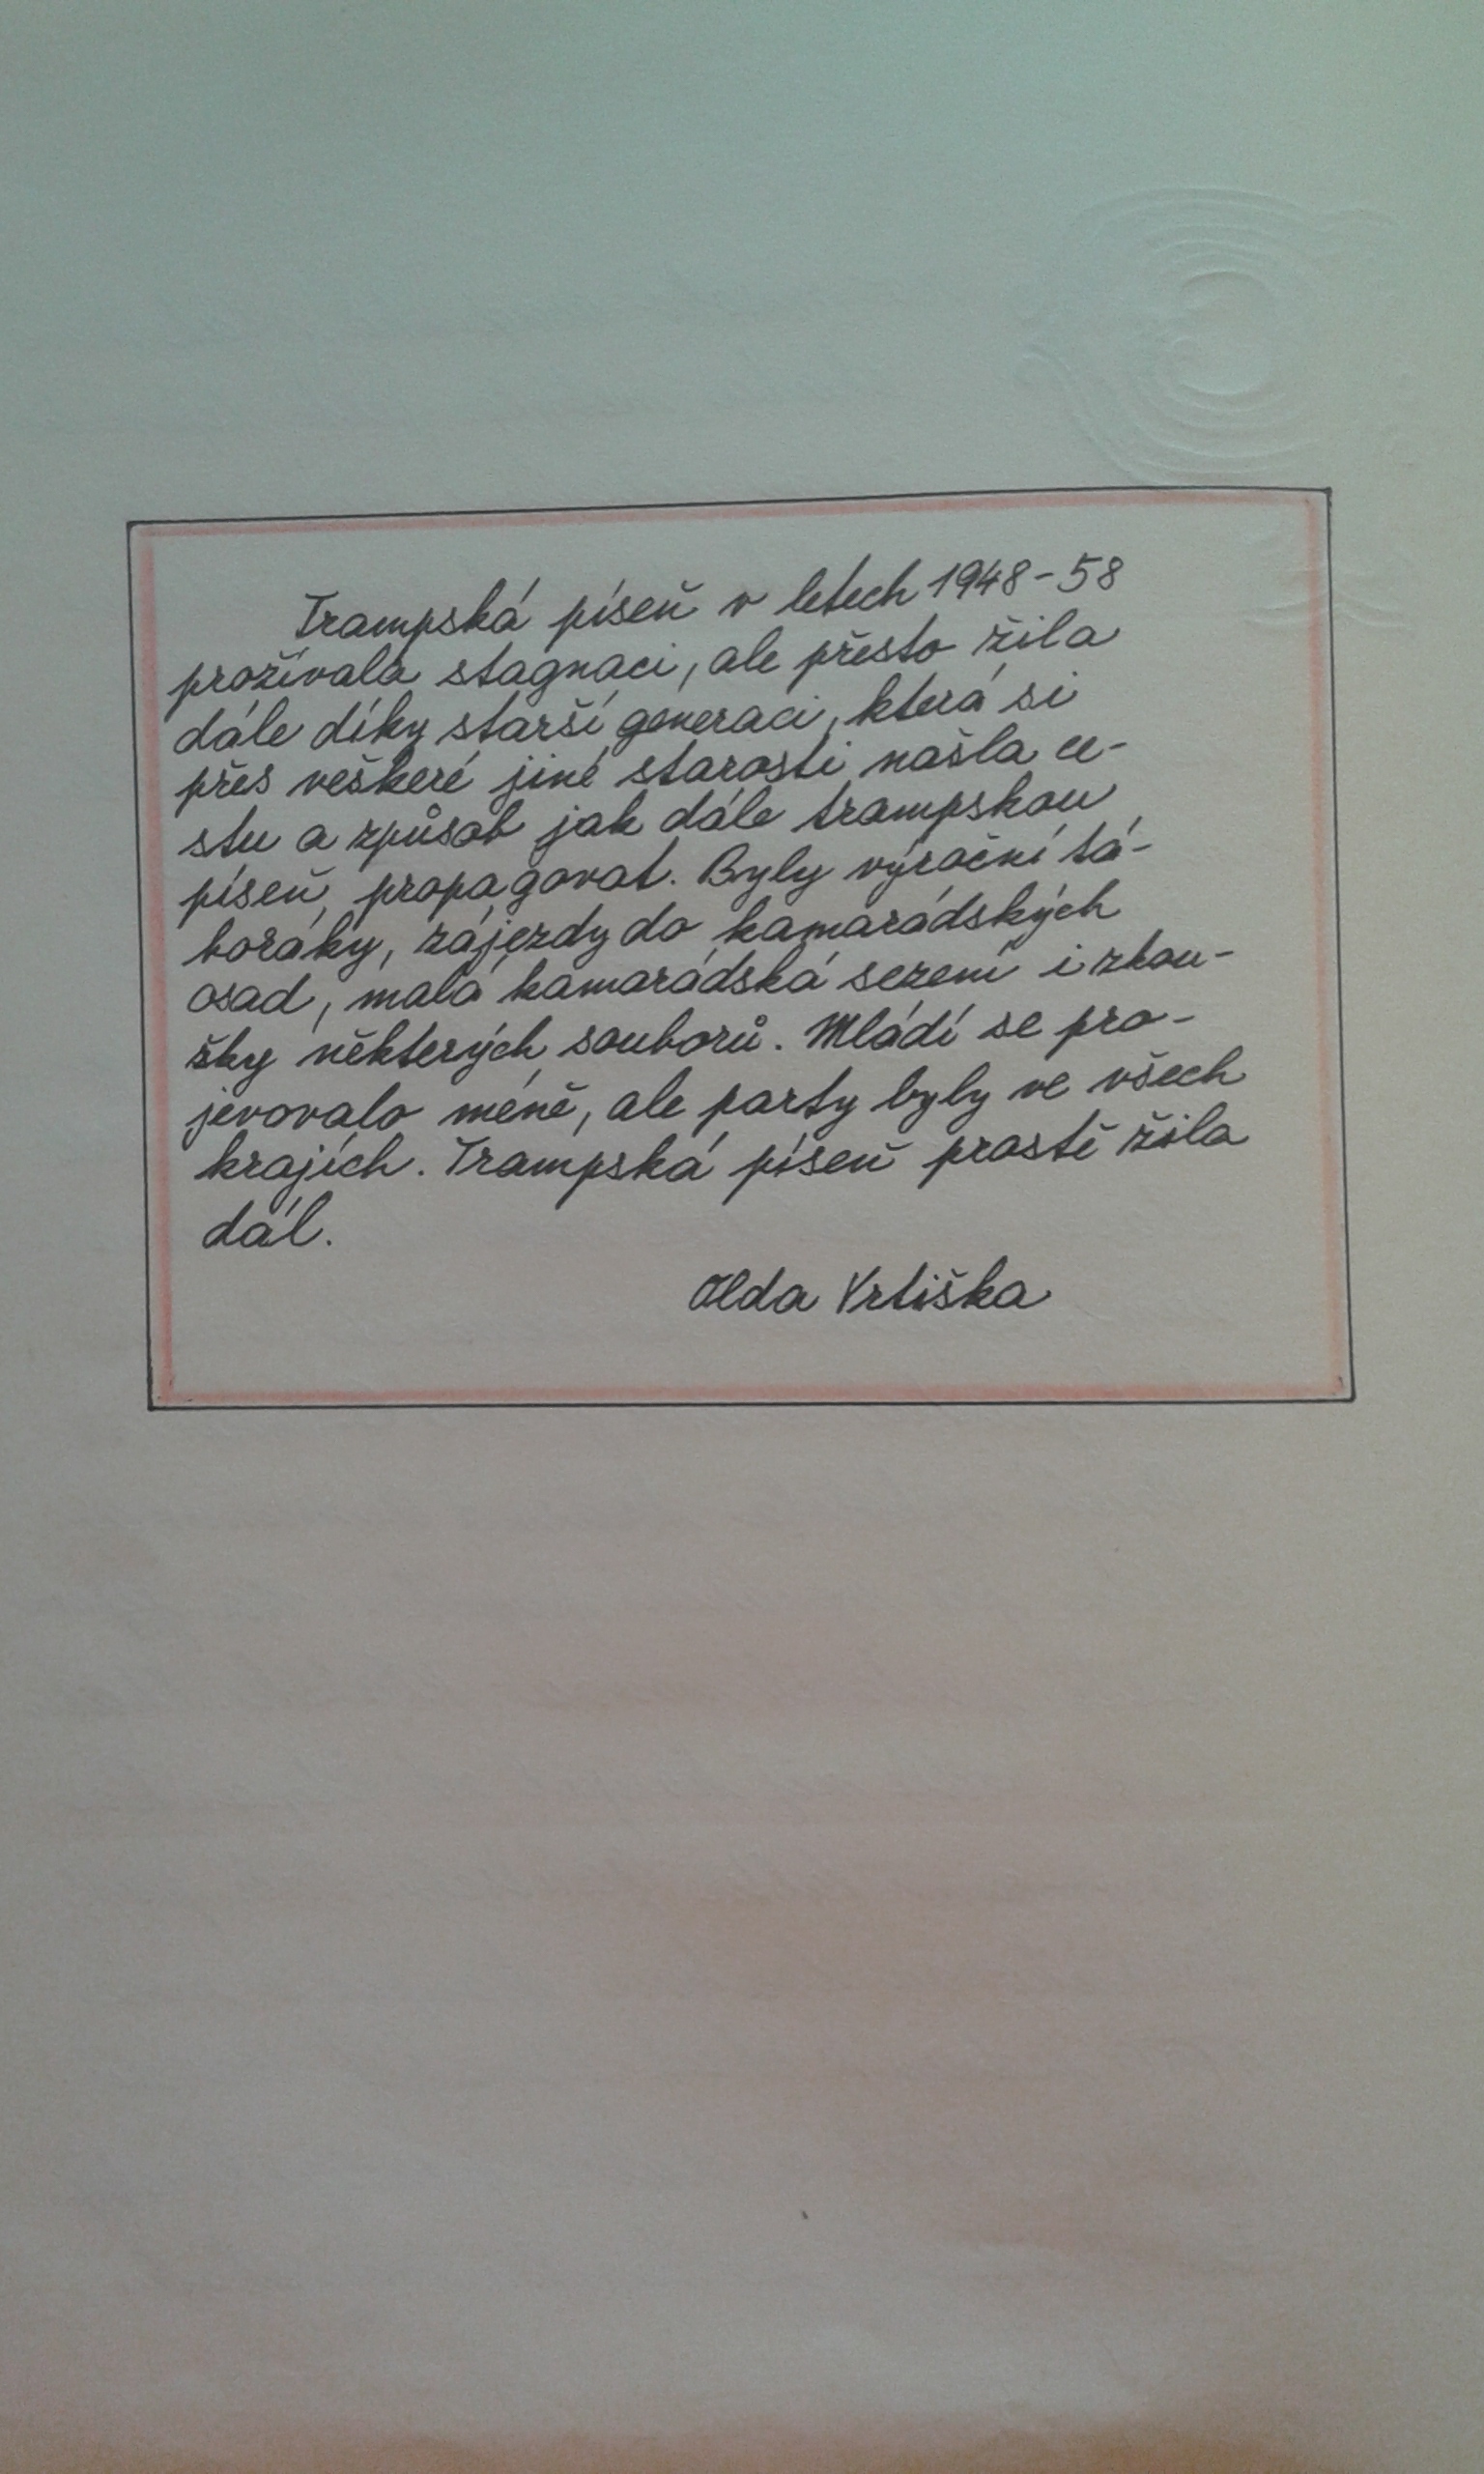 Trampská píseň v letech 1948-58
prožívala stagnaci, ale přesto žila
dále díky starší generaci, která si
přes veškeré jiné starosti našla ce-
stu a způsob jak dále trampskou
píseň propagovat. Byly výroční tá-
boráky, zájezdy do kamarádských
osad, malá kamarádská sezení i zkou-
šky některých souborů. Mládí se pro-
jevovalo méně, ale party byly ve všech
krajích. Trampská píseň prostě žila
dál.
Olda Vrtiška